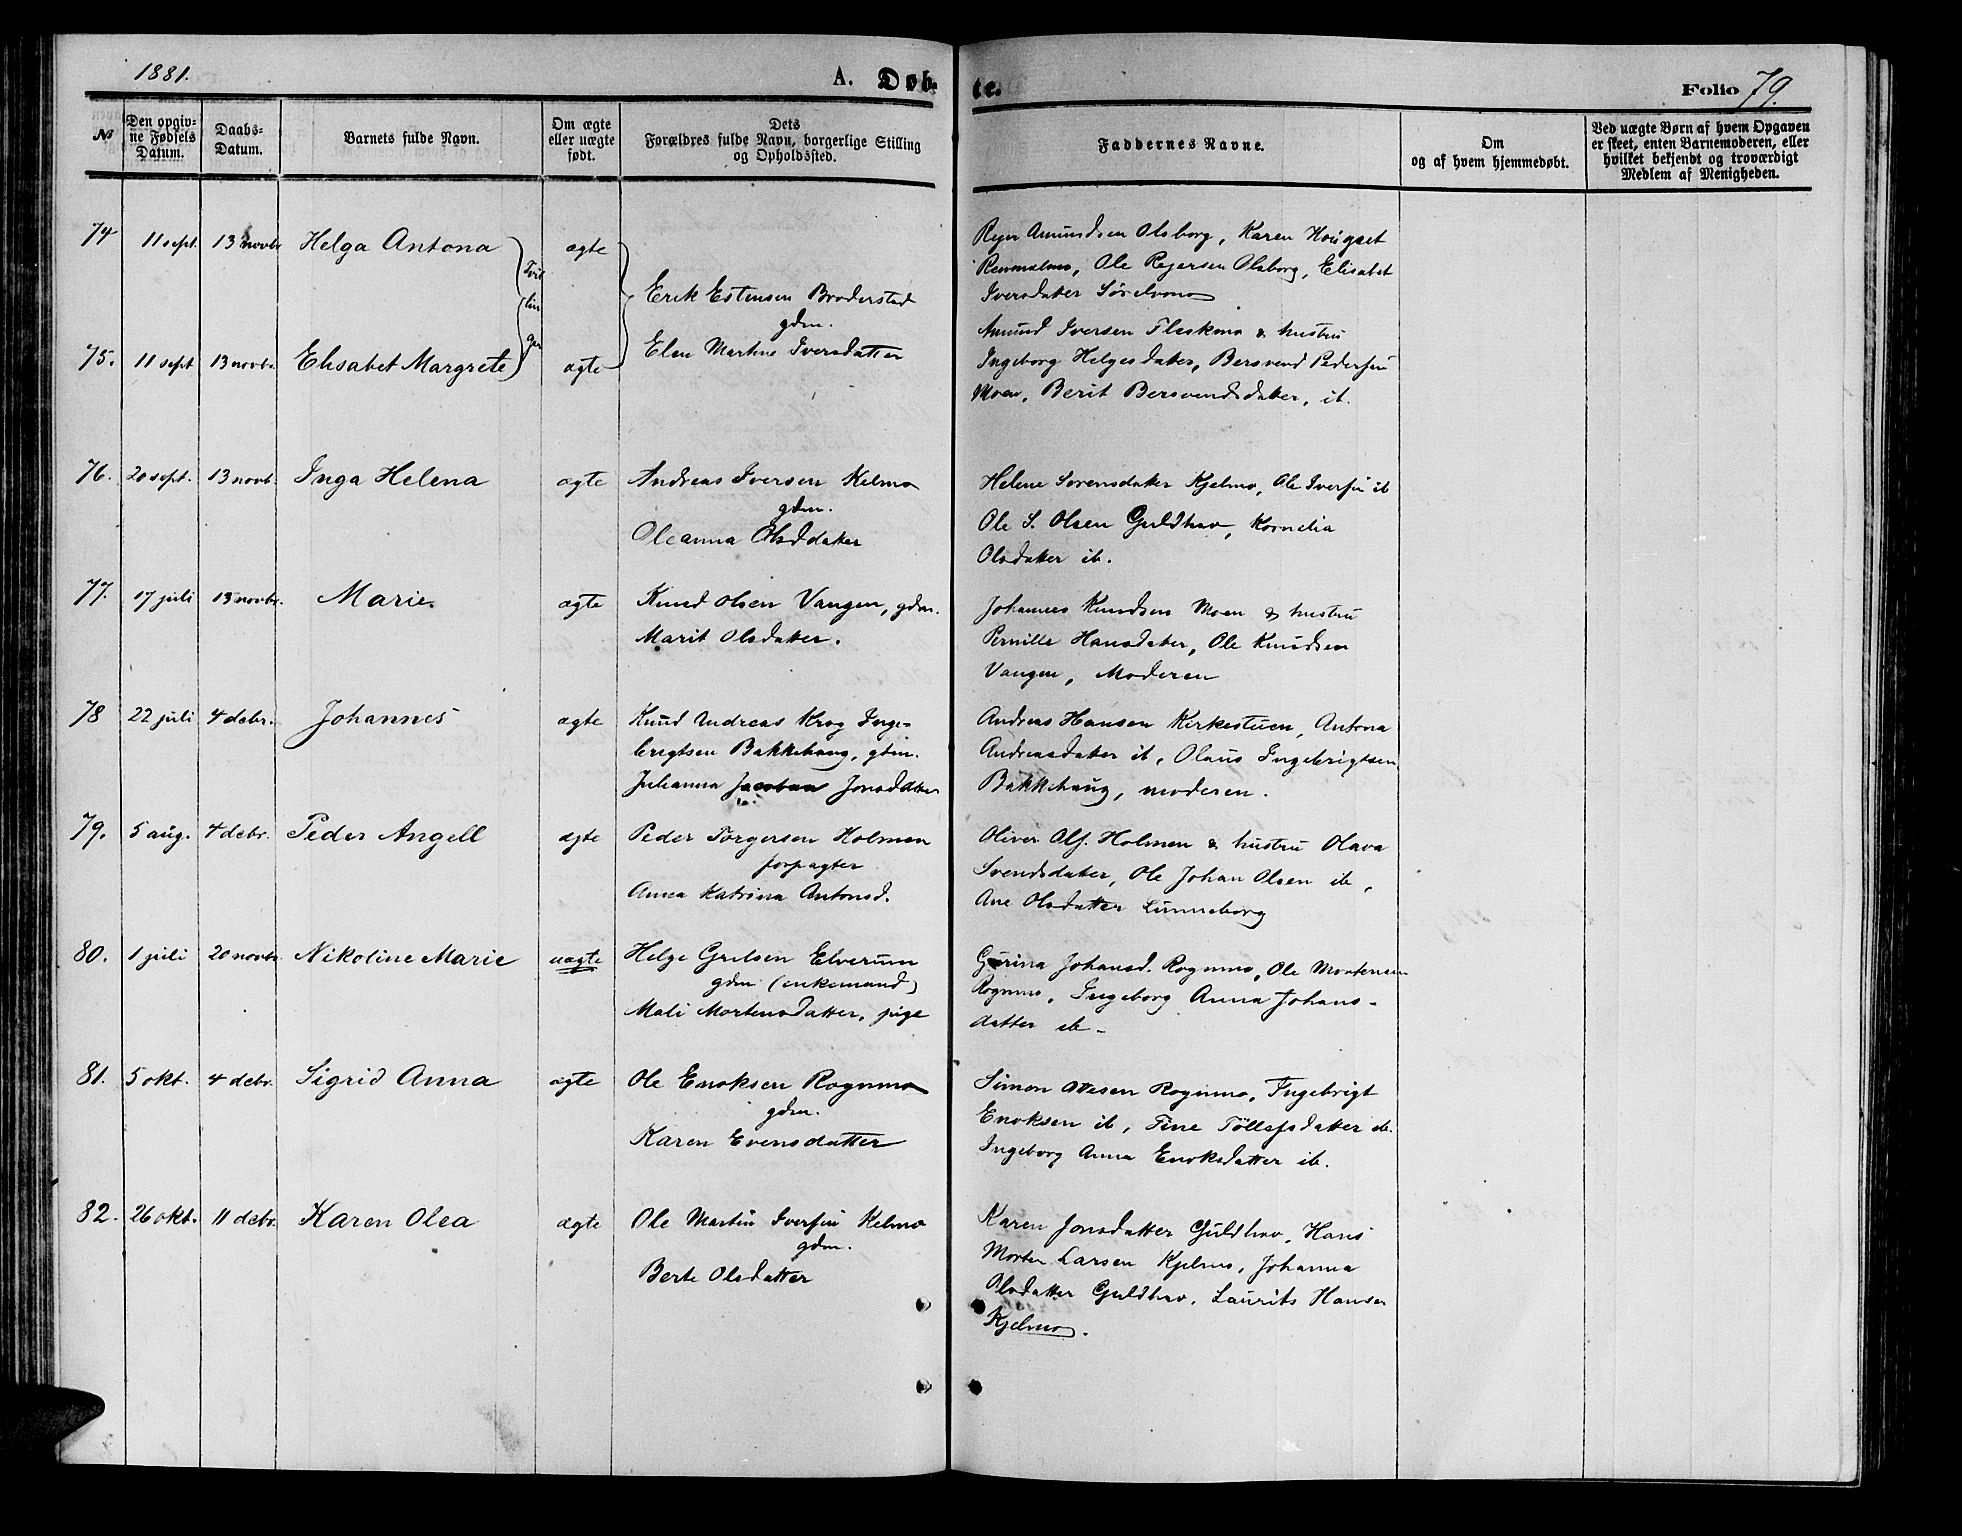 1881.
A. Døb-
te.
Folio 79.
№
Den opgiv-
ne Fødsels
Datum.
Daabs-
Datum.
Barnets fulde Navn.
Om ægte
eller uægte
født.
Dets
Forældres fulde Navn, borgerlige Stilling
og Opholdssted.
Faddernes Navne.
Om
og af hvem hjemmedøbt.
Ved uægte Børn af hvem Opgaven
er skeet, enten Barnemoderen, eller
hvilket bekjendt og troværdigt
Medlem af Menigheden.
74 11 sept. 13 novbr Helga Antona ægte
Tvil
lin
ger
Erik Estensen Broderstad
gdm.
Elen Martine Iversdatter
Amundsen Olsborg, Karen
Ole Rejersen Olsborg, Elisabet
Iversdatter
75. 11 sept 13 novbr. Elisabet Margrete ægte
Amund Iversen Fleskmo & hustru
Ingeborg Helgesdatter, Bersvend Pedersen
Moen, Berit Bersvendsdatter, ib.
76. 20 sept. 13 novb. Inga Helena ægte
Andreas Iversen Kelmo
gdm.
Oleanna Olsddatter
Helene Sørensdatter Kjelmo, Ole Iversen ib
Ole S. Olsen Guldhav, Kornelia
Olsdatter ib.
77. 17 juli 13 novbr. Marie. ægte
Knud Olsen Vangen, gdm.
Marit Olsdatter.
Johannes Knudsen Moen & hustru
Pernille Hansdatter, Ole Knudsen
Vangen, Moderen
78 22 juli 4 debr. Johannes ægte
Knud Andreas Krog Inge-
brigtsen Bakkehaug, gdm.
Julianna Jonsddatter
Andreas Hansen Kirkestuen, Antona
Andreasdatter ib, Olaus Ingebrigtsen
Bakkehaug, moderen.
79. 5 aug. 4 debr. Peder Angell ægte
Peder Torgersen Holmen
forpagter
Anna Katrina Antonsd.
Oliver Ols. Holmen & hustru Olava
Svendsdatter, Ole Johan Olsen ib,
Ane Olsdatter Lunneborg
80. 1 juli 20 novbr. Nikoline Marie uægte
Helge Elverum
gdm (enkemand)
Mali Mortensdatter, pige
Gurina Johansd. Rognmo, Ole Mortensen
Rognmo, Ingeborg Anna Johans-
datter ib-
81. 5 okt. 4 debr. Sigrid Anna ægte
Ole Enoksen Rognmo
gdm.
Karen Evensdatter
Simon Ottesen Rognmo, Ingebrigt
Enoksen ib, Tine Töllefsdatter ib.
Ingeborg Anna Enoksdatter ib.
82. 26 okt. 11 debr. Karen Olea ægte
Ole Martin Iversen Kelmo
gdm.
Berte Olsdatter
Karen Jonsdatter Guldhav, Hans
Morten Larsen Kjelmo, Johanna
Olsdatter Guldhav, Laurits Hansen
Kjelmo.